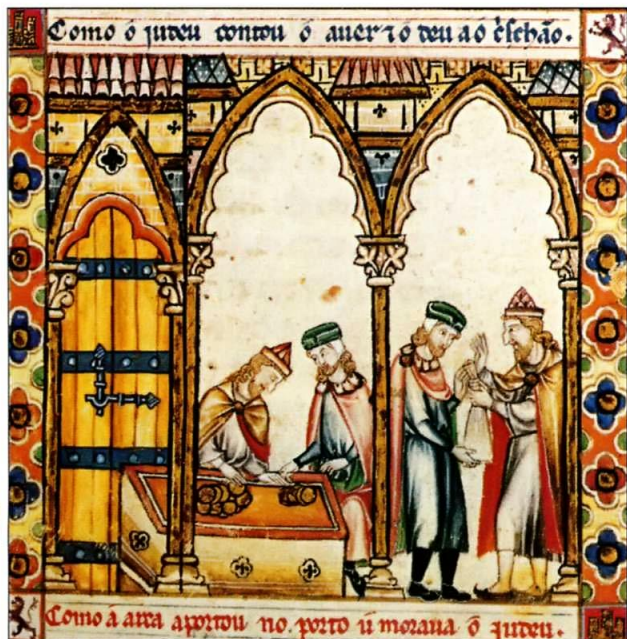 Como o judeu contou o auer ⁊ o deu a o c̓schão.
Como a arca aportou no porto u moraua o judeu.